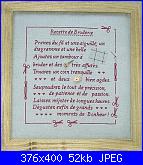 Recette de Broderie
Prenez du fil et une aiguille, un
diagramme et une belle
Ajoutez un tambour à
broder et des très affutés
Trouvez un endroit calme et
bien éclairé
Saupoudrez le tout de précision,
de patience et de passion
Laissez mijoter de longues heures
Dégustez enfin ce grand
moments de Bonheur !
376x400 52kb JPEG